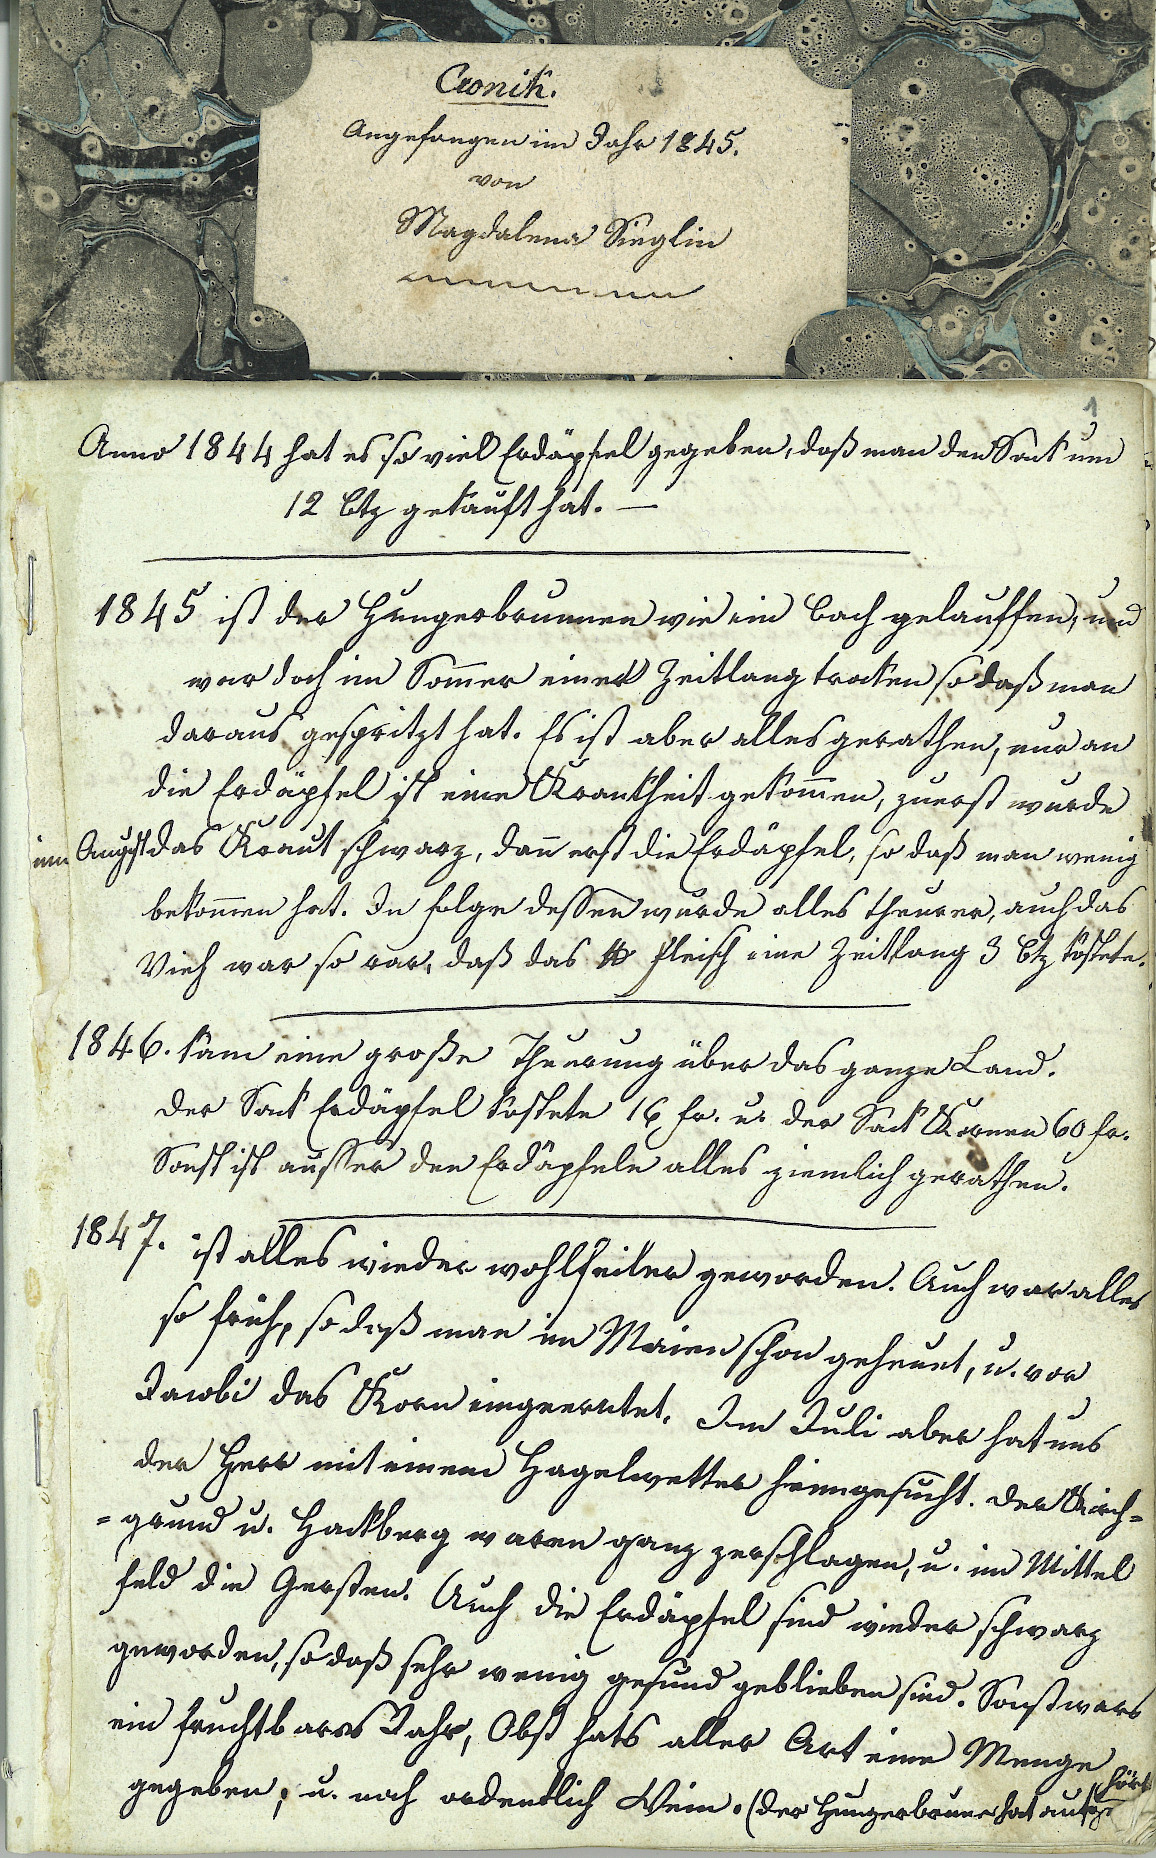 Cronik.
Angefangen im Jahr 1845.
von
Magdalena Sieglin
1
Anno 1844 hat es so viel Erdäpfel gegeben, daß man den Sack um
12 btz gekauft hat. —
1845 ist der Hungerbrunnen wie ein Bach gelauffen, und
war doch im Som̅er einet Zeitlang trocken so daß man
daraus gespritzt hat. Es ist aber alles gerathen, nur an
die Erdäpfel ist eine Krankheit gekom̅en, zuerst wurde
im August das Kraut schwarz, dan̅ erst die Erdäpfel, so daß man wenig
bekom̅en hat. In folge dessen wurde alles theurer, auch das
Vieh war so rar, daß das ℔ fleisch eine Zeitlang 3 btz kostete.
1846. kam eine große Theurung über das ganze Land.
der Sack Erdäpfel kostete 16 fr. u. der Sack Kernen 60 fr.
Sonst ist ausser den Erdäpfeln alles ziemlich gerathen.
1847. ist alles wieder wohlfeiler geworden. Auch war alles
so früh, so daß man im Maien schon geheuet, u. vor
Jacobi das Korn eingeerntet. Im Juli aber hat uns
der Herr mit einem Hagelwetter heimgesucht. der Kirch=
=grund u. Hackberg waren ganz zerschlagen, u. im Mittel
feld die Gersten. Auch die Erdäpfel sind wieder schwarz
geworden, so daß sehr wenig gesund geblieben sind. Sonst wars
ein fruchtbares Jahr, Obst hats aller Art eine Menge
gegeben, u. noch ordentlich Wein. (der Hungerbrunen hat aufge
hört